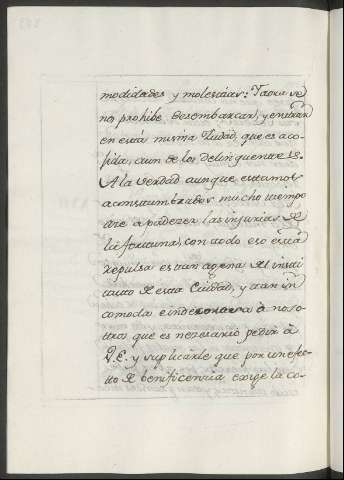 modidades y molestias: Taora se
nos prohibe desembarcar, y entrar
en está misma Ciudad, que es aco-
jida, aun de los delinquentes.
A la verdad aunque estamos
aconstumbrados mucho tiempo
are a padezer las injurias de
la fortuna, con todo eso esta
repulsa es tan agena del insti
tuto de esta Ciudad, y tan in
comoda e indecorosa à noso-
tros que es nezesario pedir à
V.E. y suplicarle que por un efec-
to de benificencia exige la co-